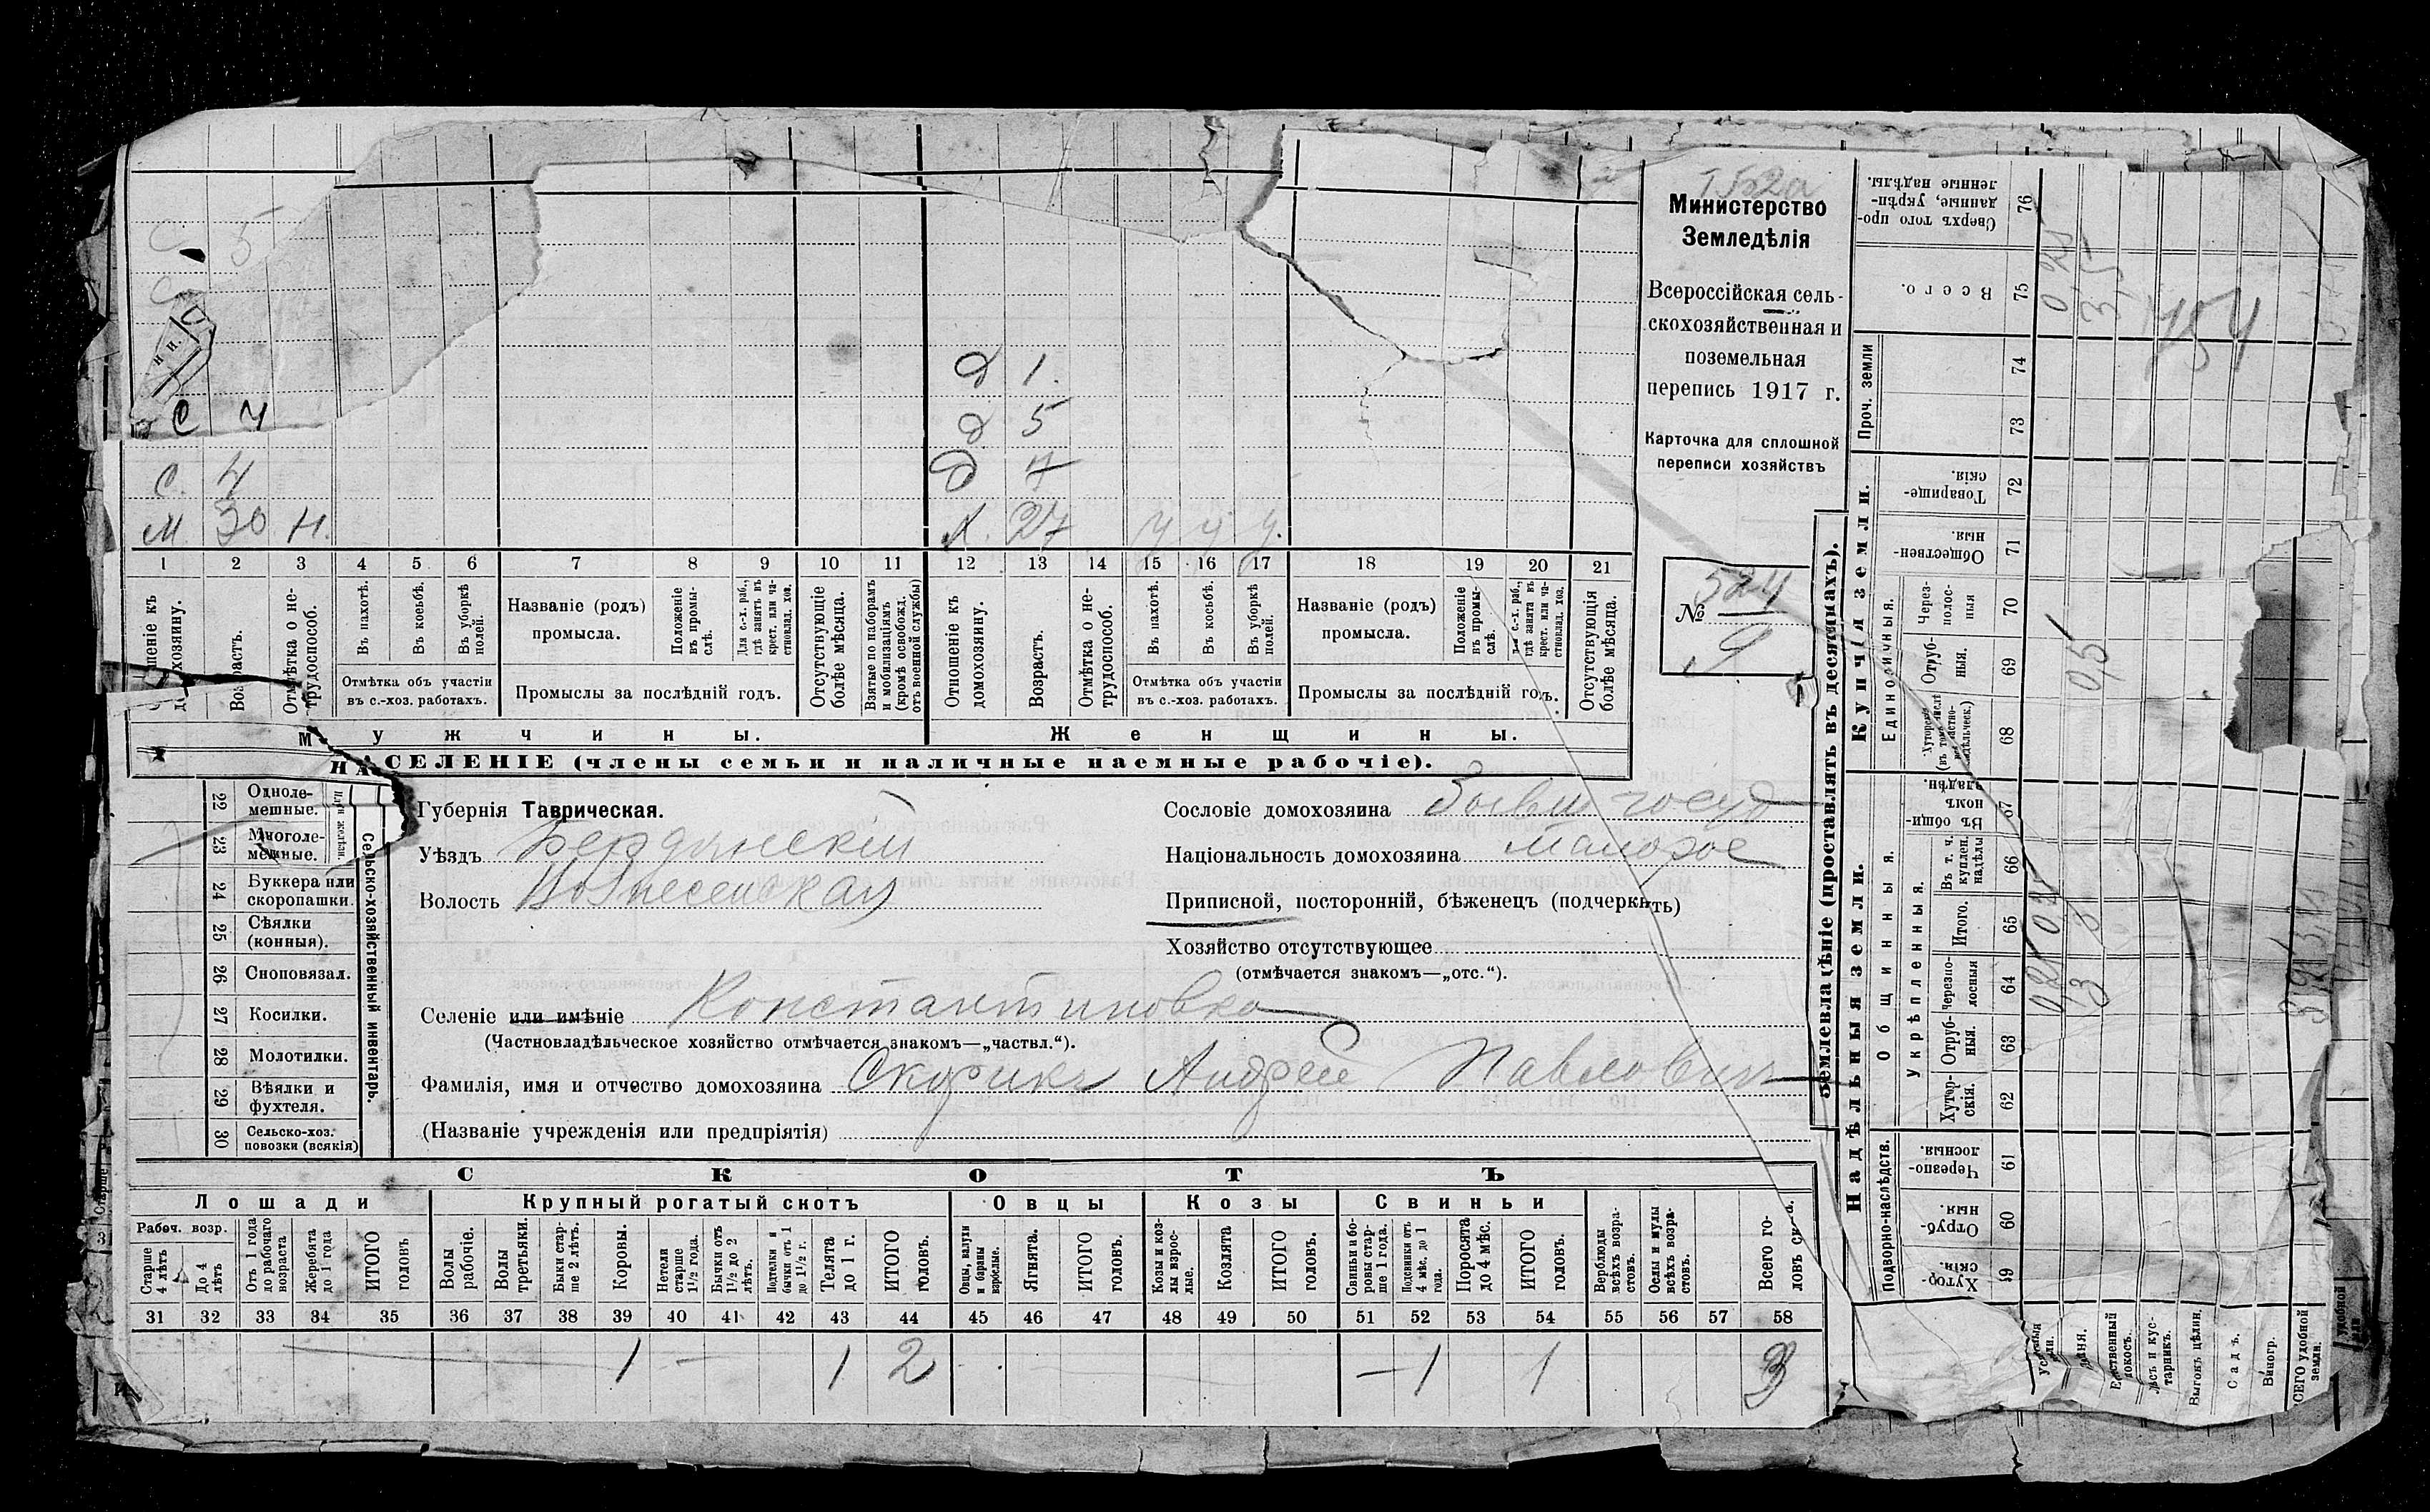 Министерство
Земледѣлія
Всероссійская сель-
скохозяйственная и
поземельная
перепись 1917 г.
Карточка для сплошной
переписи хозяйствъ
№ 524
9
С 5
С 4
С. 4
М 30 Н.
д 1.
д 5
д 7
Ж. 27 у у у.
1 2 3 4 5 6 7 8 9 10 11 12 13 14 15 16 17 18 19 20 21
Отношеніе къ домохозяину.
Возрастъ.
Отмѣтка о не-трудоспособ.
Въ пахотѣ.
Въ косьбѣ.
Въ уборкѣ полей.
Отмѣтка объ участіи
въ с.-хоз. работахъ.
Названіе (родъ)
промысла.
Положеніе въ промы-слѣ.
Для с.-х. раб., гдѣ занятъ въ крест. или ча-стновлад. хоз.
Промыслы за послѣдній годъ.
Отсутствующіе болѣе мѣсяца.
Взятые по наборамъ и мобилизаціямъ (кромѣ освобожд. отъ военной службы)
Отношеніе къ домохозяину.
Возрастъ.
Отмѣтка о не-трудоспособ.
Въ пахотѣ.
Въ косьбѣ.
Въ уборкѣ полей.
Отмѣтка объ участіи
въ с.-хоз. работахъ.
Названіе (родъ)
промысла.
Положеніе въ промы-слѣ.
с.-х. раб., гдѣ занята въ крест. или ча-стновлад. хоз.
Промыслы за послѣдній годъ.
Отсутствующія болѣе мѣсяца.
Мужчины.
Женщины.
НАСЕЛЕНІЕ (члены семьи и наличные наемные рабочіе).
22 Одноле-мешные.
23 Многоле-мешные.
24 Буккера или скоропашки.
25 Сѣялки (конныя).
26 Сноповязал.
27 Косилки.
28 Молотилки.
29 Вѣялки и фухтеля.
30 Сельско-хоз. повозки (всякія)
Сельско-хозяйственный инвентарь.
Губернія Таврическая.
Уѣздъ Бердянскій
Волость Вознесенская
Сословіе домохозяина Бывш госуд
Національность домохозяина малорос
Приписной, посторонній, бѣженецъ (подчеркнуть)
Хозяйство отсутствующее
(отмѣчается знакомъ—„отс.“).
Селеніе или имѣніе Константиновка
(Частновладѣльческое хозяйство отмѣчается знакомъ—„частвл.“).
Фамилія, имя и отчество домохозяина Скорикъ Андрей Павлович
(Названіе учрежденія или предпріятія)
СКОТЪ
Лошади
Крупный рогатый скотъ
Овцы
Козы
Свиньи
Рабоч. возр.
Старше 4 лѣтъ
До 4 лѣтъ
Отъ 1 года до рабочаго возраста
Жеребята до 1 года
ИТОГО головъ
Волы рабочіе.
Волы третьяки.
Быки стар-ше 2 лѣтъ.
Коровы.
Нетели старше 1½ года.
Бычки отъ 1½ до 2 лѣтъ.
Подтелки и бычки отъ 1 до 1½ г.
Телята до 1 г.
ИТОГО головъ.
Овцы, валухи и бараны взрослые.
Ягнята.
ИТОГО головъ.
Козы и коз-лы взрос-лые.
Козлята
ИТОГО головъ.
Свиньи и бо-ровы стар-ше 1 года.
Подсвинки отъ 4 мѣс. до 1 года.
Поросята до 4 мѣс.
ИТОГО головъ
Верблюды всѣхъ возра-стовъ.
Ослы и мулы всѣхъ возра-стовъ.
Всего го-ловъ
31 32 33 34 35 36 37 38 39 40 41 42 43 44 45 46 47 48 49 50 51 52 53 54 55 56 57 58
1 — 1 2 — 1 1 3
Землевладѣніе (проставлять въ десятинахъ).
Надѣльныя земли.
Купчія земли.
Проч. земли
Подворно-наслѣдств.
Общинныя.
Укрѣпленныя.
Единоличныя.
Хутор-скія. 59
Отруб-ныя. 60
Черезпо-лосныя. 61
Хутор-скія. 62
Отруб-ныя. 63
Черезпо-лосныя 64
Итого. 65
Въ т. ч. куплен. надѣлы 66
Въ общи-номъ владѣн. 67
68
Отруб-ныя. 69
Через-полос-ныя 70
Обществен-ныя. 71
Товарище-скія. 72
73
74
Всего. 75
Сверхъ того про-данные, укрѣп-ленные надѣлы. 76
Естественный покосъ.
Лѣсъ и кус-тарникъ.
Выгонъ цѣлин.
Садъ.
Виногр.
ВСЕГО удобной земли.
0,25 0,25 0,25
3 3 0,5 3,5